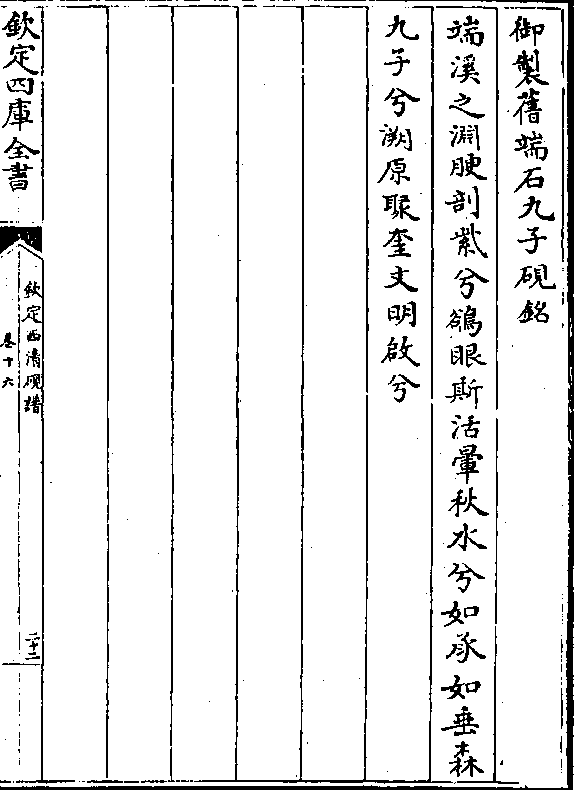 御製舊端石九子硯銘
端溪之淵腴剖紫兮鴝眼斯活暈秋水兮如承如垂森
九子兮溯原聚奎文明啟兮
欽定四庫全書
欽定西清硯譜
卷十六
二十二